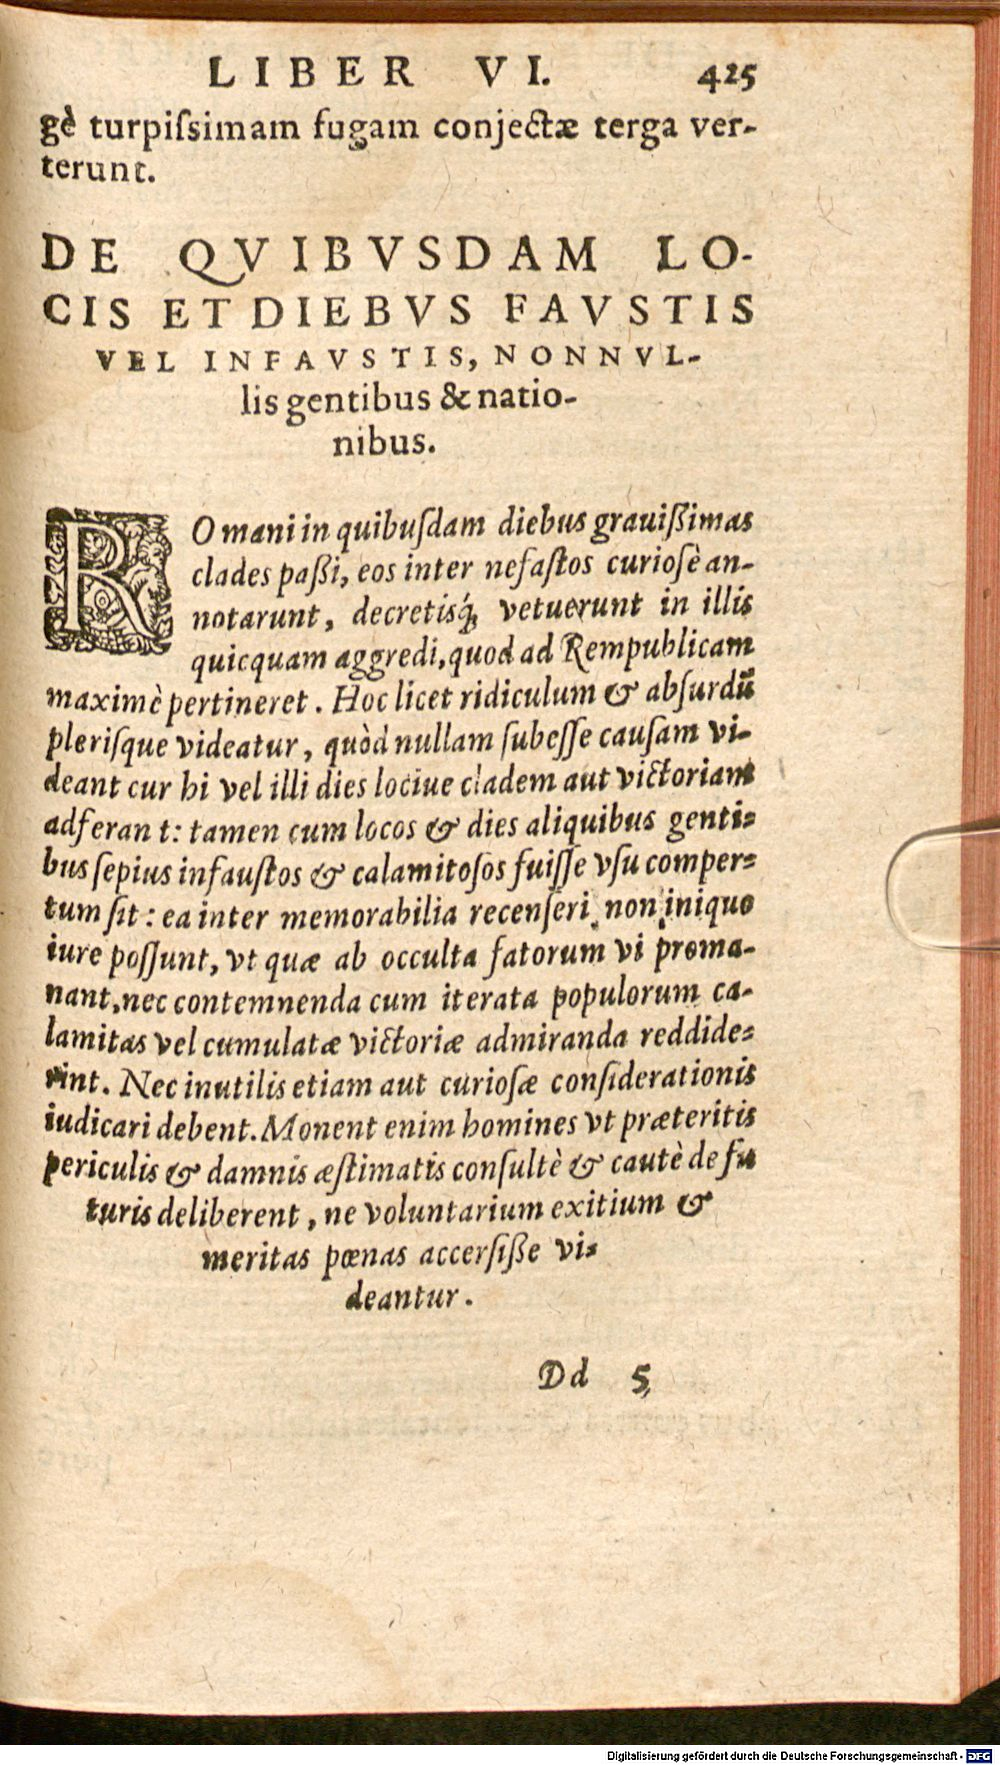 LIBER VI. 425
gè turpiſsimam fugam conjectæ terga ver-
terunt.
DE QVIBVSDAM LO-
CIS ET DIEBVS FAVSTIS
VEL INFAVSTIS, NONNVL-
lis gentibus & natio-
nibus.
ROmani in quibuſdam diebus grauißimas
clades paßi, eos inter nefaſtos curiosè an-
notarunt, decretisq́; vetuerunt in illis
quicquam aggredi, quod ad Rempublicam
maximè pertineret. Hoc licet ridiculum & abſurdū
pleriſque videatur, quòd nullam ſubeſſe cauſam vi-
deant cur hi vel illi dies lociue cladem aut victoriam
adferant: tamen cum locos & dies aliquibus genti-
bus ſepius infauſtos & calamitoſos fuiſſe vſu comper-
tum ſit: ea inter memorabilia recenſeri non iniquo
iure poſſunt, vt quæ ab occulta fatorum vi proma-
nant, nec contemnenda cum iterata populorum ca-
lamitas vel cumulatæ victoriæ admiranda reddide-
rint. Nec inutilis etiam aut curioſæ conſiderationis
iudicari debent. Monent enim homines vt præteritis
periculis & damnis æſtimatis conſultè & cautè de fu
turis deliberent, ne voluntarium exitium &
meritas pœnas accerſiße vi-
deantur.
Dd 5
Digitalisierung gefördert durch die Deutsche Forschungsgemeinschaft - DFG